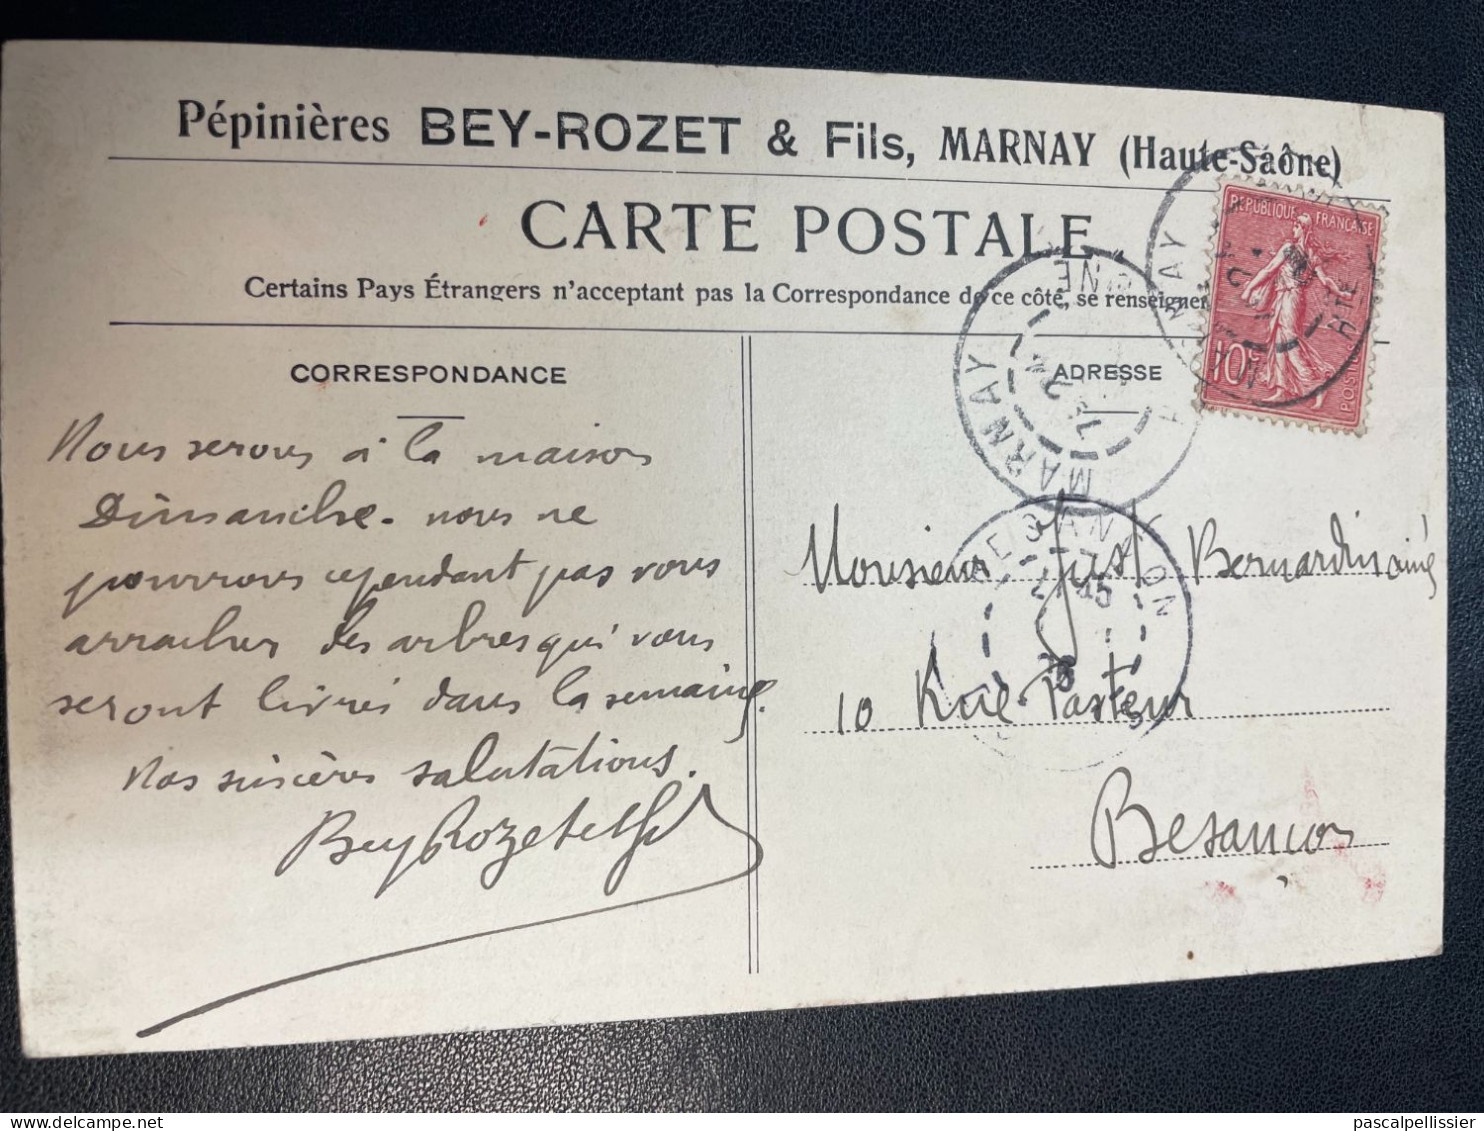 Pépinières BEY-ROZET & Fils, MARNAY (Haute-Saône)
CARTE POSTALE
Certains Pays Étrangers n'acceptant pas la Correspondance de ce côté, se renseigner
REPUBLIQUE FRANÇAISE
10c
MARNAY
HTE
CORRESPONDANCE
ADRESSE
MARNAY
Nous serons à la maison
Dimanche. nous ne
pourrons cependant pas vous
arracher des arbres qui vous
seront livrés dans la semaine.
Nos sincères salutations.
Bey Rozet et fils
BESANÇON
Monsieur Just Bernardin ainé
10 Rue Pasteur
Besançon
pascalpellissier